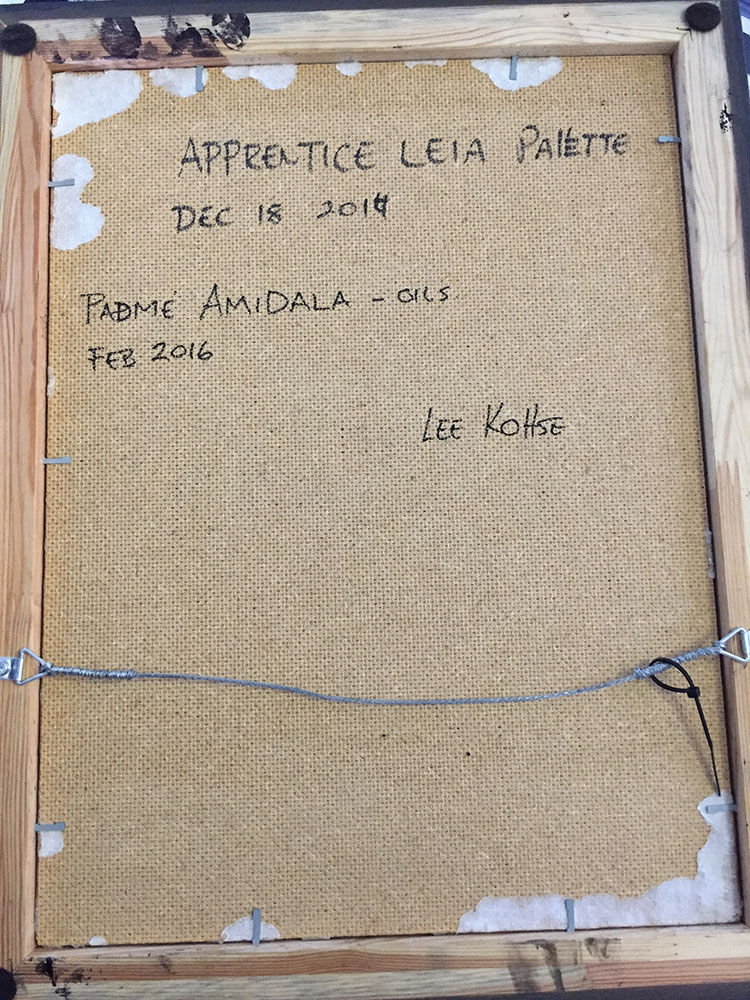 APPRENTICE LEIA PALETTE
DEC 18 2014
PADMÉ AMIDALA - OILS
FEB 2016
LEE KOHSE